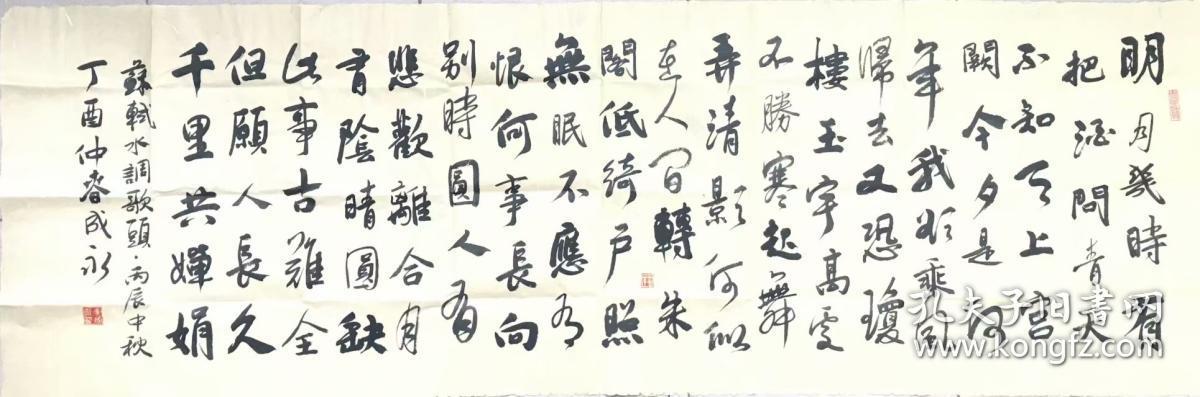 明月幾時有
把酒問青天
不知天上宮
闕今夕是何
年我欲乘風
歸去又恐瓊
樓玉宇高處
不勝寒起舞
弄清影何似
在人間轉朱
閣低綺户照
無眠不應有
恨何事長向
别時圓人有
悲歡離合月
有陰晴圓缺
此事古難全
但願人長久
千里共嬋娟
蘇軾水調歌頭·丙辰中秋
丁酉仲春成永
孔夫子旧書网
www.kongfz.com